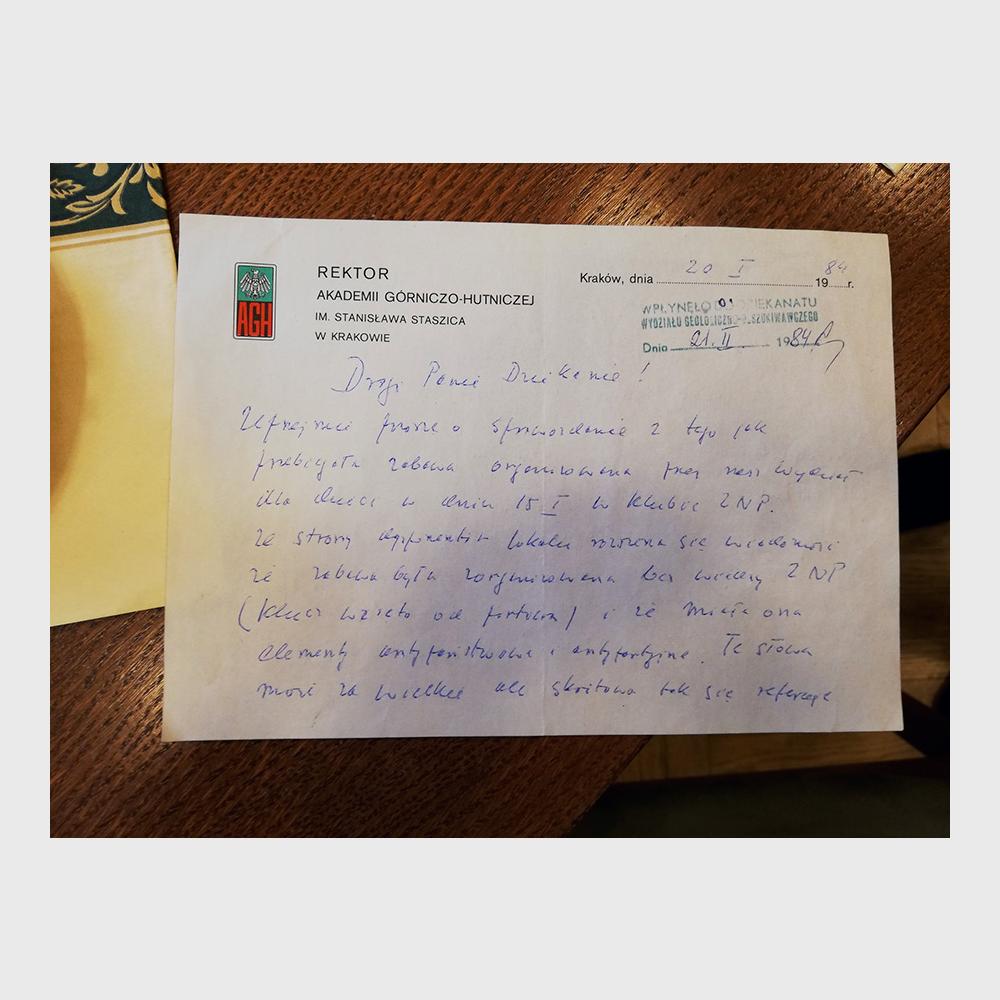 AGH
REKTOR
AKADEMII GÓRNICZO-HUTNICZEJ
IM. STANISŁAWA STASZICA
W KRAKOWIE
Kraków, dnia 20 I 1984 r.
WPŁYNĘŁO DO DZIEKANATU
WYDZIAŁU GEOLOGICZNO-POSZUKIWAWCZEGO
Dnia 21. II 1984
Drogi Panie Dziekanie!
Uprzejmie proszę o sprawozdanie z tego jak
przebiegała zabawa organizowana przez nasz wydział
dla dzieci w dniu 15 I w klubie ZNP.
Ze strony dysponentów lokalu roznosi się wiadomość
że zabawa była zorganizowana bez wiedzy ZNP
(klucz wzięto od portiera) i że miała ona
elementy antypaństwowe i antypartyjne. Te słowa
może za wielkie ale skrótowo tak się referuje